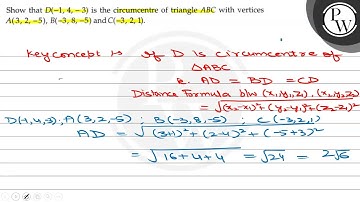 Show that D(−1, 4, − 3) is the circumcentre of triangle ABC with vertices
A(3, 2, −5), B(−3, 8, −5) and C(−3, 2, 1).
Key concept is If D is circumcentre of
ΔABC
i.e. AD = BD = CD
Distance Formula b/w (x₁,y₁,z₁), (x₂,y₂,z₂)
= √(x₂-x₁)²+(y₂-y₁)²+(z₂-z₁)²
D(-1,4,-3), A(3,2,-5) ; B(-3,8,-5) ; C(-3,2,1)
AD = √(3+1)²+(2-4)²+(-5+3)²
= √16+4+4 = √24 = 2√6